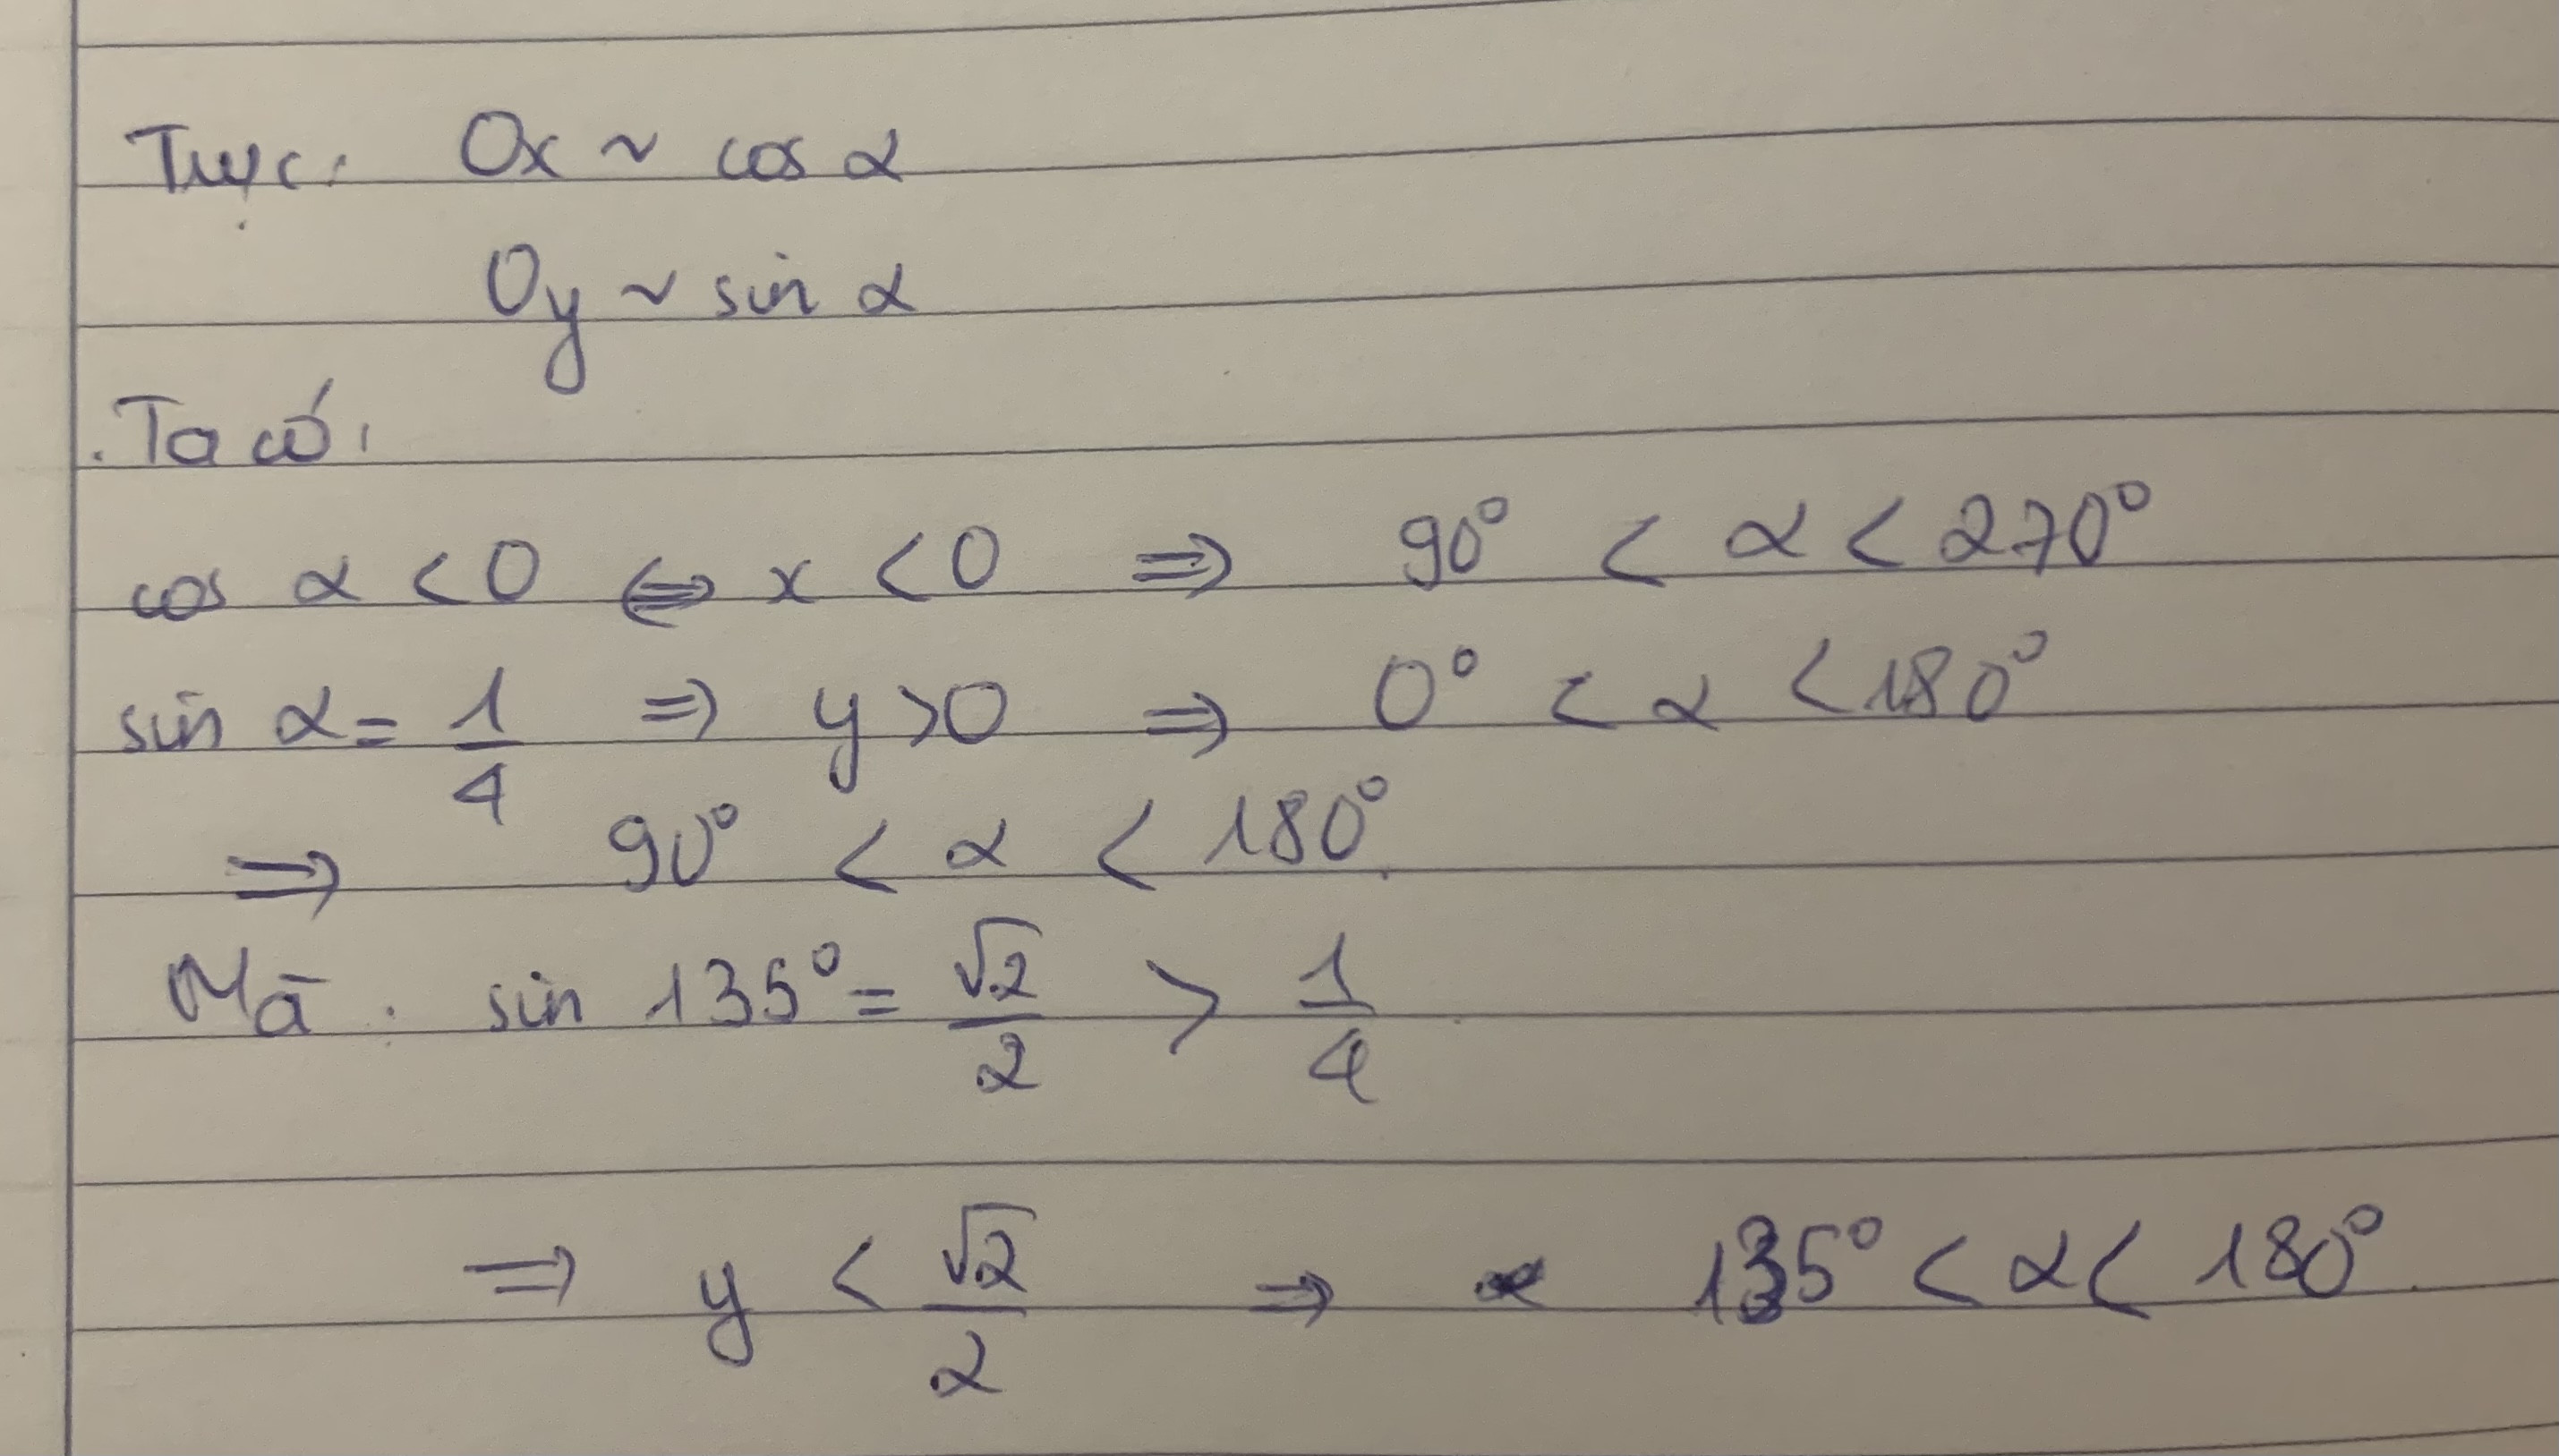 Trục: Ox ~ cos α
Oy ~ sin α
. Ta có:
cos α < 0 ⇔ x < 0 ⇒ 90° < α < 270°
sin α = 1/4 ⇒ y > 0 ⇒ 0° < α < 180°
⇒ 90° < α < 180°
Mà . sin 135° = √2/2 > 1/4
⇒ y < √2/2 ⇒ 135° < α < 180°